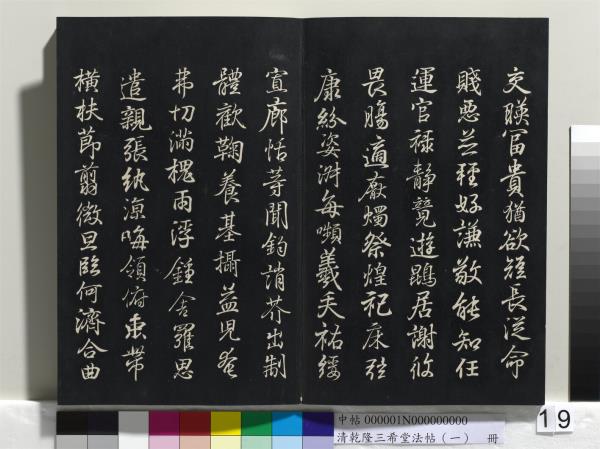 交映冨貴猶欲短長從命
賤惡並種好謙敬能知任
運官祿靜競遊鵾居謝攸
畏腸適厭燭祭煌祀床弦
康紛姿淵每嚬羲夫祐綏
宣廊恬等聞鈞誚芥出制
體歡鞠養基攝益兒
弗切滿槐雨浮鍾舍羅思
遣親張紈凉晦領俯束帶
橫扶節翦微旦臨何濟合曲
中帖 000001N000000000
清乾隆三希堂法帖(一) 冊
19